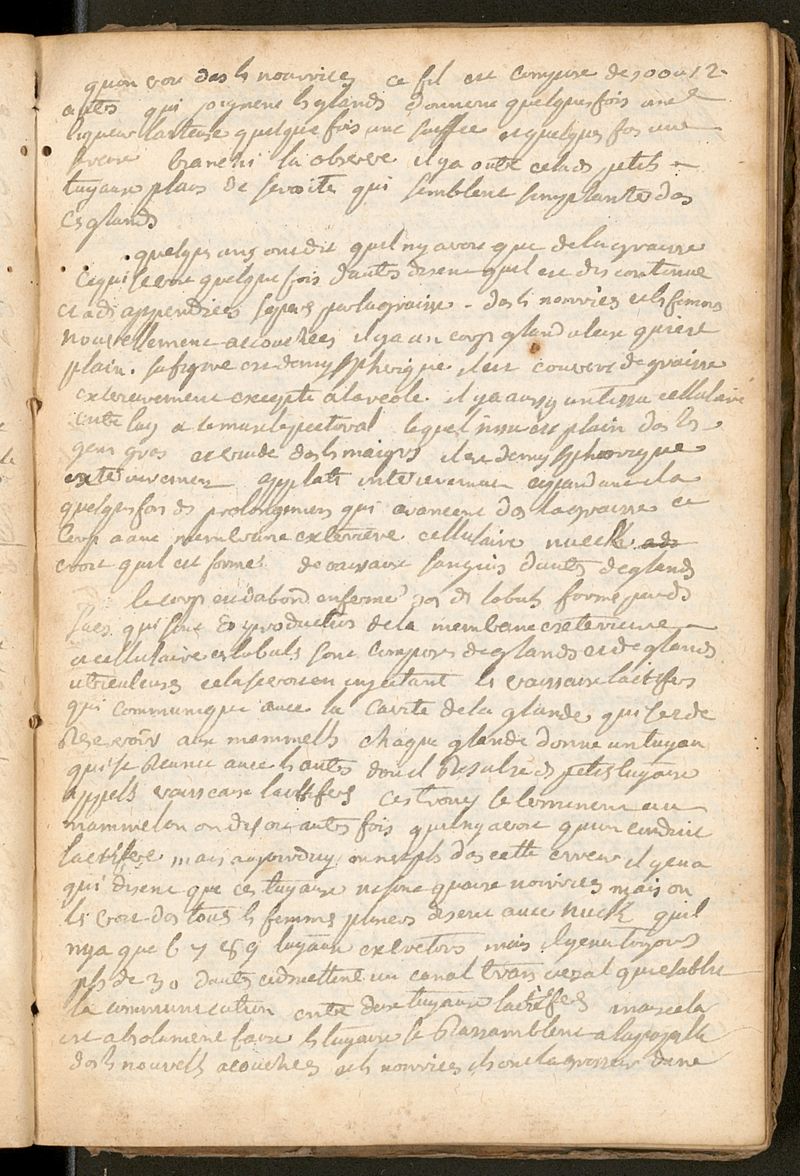 quon voit das ls nourrices ce fil est compose de 10 ou 12
autes qui joignent ls glands donnent quelquesfois une
liqueur laiteuse quelque fois une et quelques fois une
bianchi la observe il y a outre cela ds petits
tuyaux plains de serosite qui semblent simplanter das
cs glands
quelques uns ont dit quil ny avoit que de la graisse
ce qui se voit quelque fois dautes disent quil est discontinue
et a ds appendices separes par la graisse - das ls nourrices et ls femmes
nouvellement acouchées il y a un corp glanduleux qui est
plain. sa figure est demy sppherique il est couvert de graisse
exterieurement excepte a lareole. il y a aussy un tissu cellulaire
entre luy et le muscle pectoral lequel tissu est plain das ls
gens gros et vuide das ls maigres il est demy sppherique
exterieurement applati interieurement cependant il a
quelques fois ds prolongemens qui avancent das la graisse ce
corp a une membrane exterieure cellulaire nuck
croit quil est forme de vaissaux sanguins dautes de glands
le corp est dabord enferme par ds lobuls formé par ds
sacs qui sont ds productions de la membrane exterieure
et cellulaire cs lobuls sont composes de glands et de glands
utriculeuses cela se voit en injectant ls vaissaux lactifers
qui communique avec la cavite de la glande qui sert de
Reservoir aux mammells chaque glande donne un tuyau
qui se Reunit avec ls autes dou il Resulte ds petis tuyaux
appels vaissaux lactifers cs tuyaux se terminent au
mammelon on disoit autes fois quil ny avoit quun conduit
lactifere mais aujourduy on nest pls das cette erreur il y en a
qui disent que cs tuyaux ne sont quaux nourrices mais on
ls voit das touts ls femmes pluiers disent avec nuck quil
ny a que 6 7 8 9 tuyaux excretoirs mais il y en a toujours
pls de 30 dautes admettent un canal transversal qui etablit
la communication entre ds tuyaux lactifers mais cela
est absolument faux ls tuyaux se Rassemblent a la papille
das ls nouvells acouchées et ls nourrices ils ont la grosseur dune